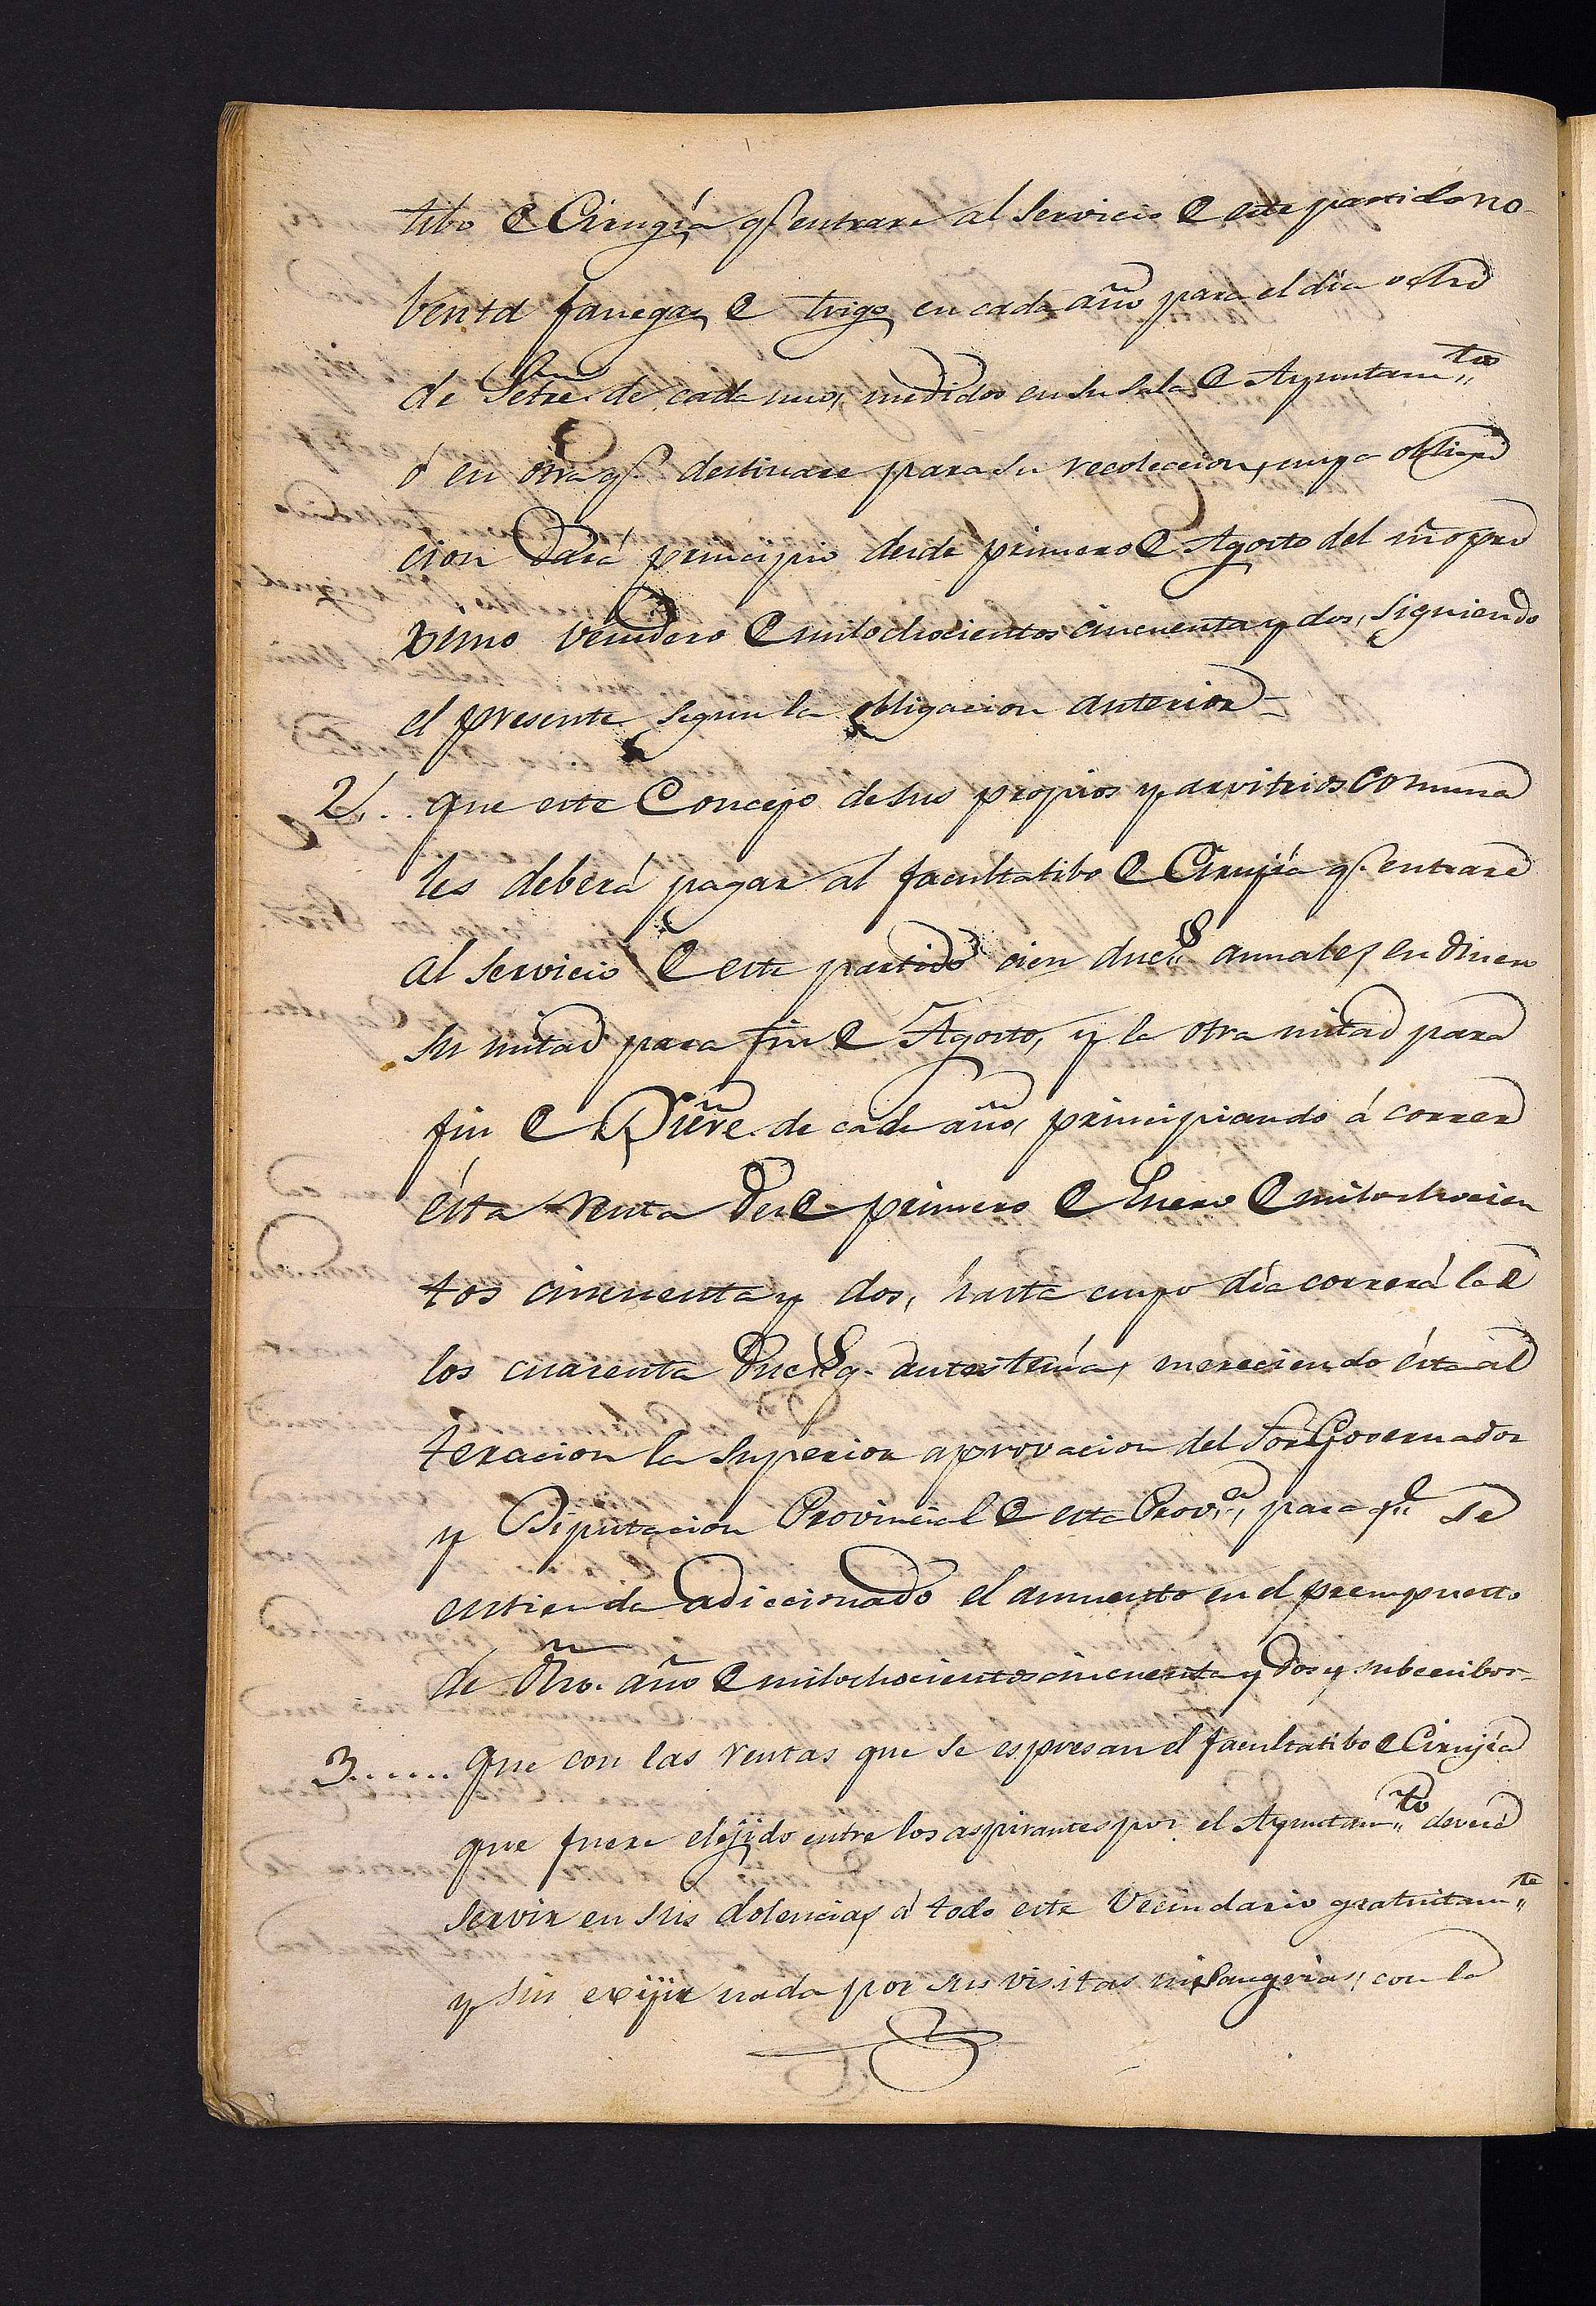 tibo de Cirugía q.e entrare al servicio de este partido no-
benta fanegas de trigo en cada año para el día ocho
de Setre. de cada uno, medidos en su sala de Ayuntam.to
ó en otra q.e destinare para su recoleccion, cuya obliga
cion dará principio desde primero de Agosto del año pro
ximo venidero de milochocientos cincuenta y dos, siguiendo
el presente segun la obligacion anterior-
2.. que este Concejo de sus propios y arvitrios comuna
les deberá pagar al facultatibo de Cirujía q.e entrare
al servicio de este partido cien duc.s annales en dinero
su mitad para fin de Agosto, y la otra mitad para
fin de Diz̃re. de cada año, principiando á correr
ésta renta desde primero de Enero de milochocien
tos cincuenta y dos, hasta cuyo día correrá la de
los cuarenta duc.s q. antes tenía, mereciendo ésta al
teracion la superior aprovacion del Sor Governador
y Diputacion Provincial de esta Prov.a, para q.e se
entienda adiccionado el aumento en el presupuesto
de dho. año de milochocientos cincuenta y dos y subcecibos-
3...... Que con las rentas que se espresan el facultatibo de Cirujía
que fuere elejido entre los aspirantes por el Ayuntam.to deverá
servir en sus dolencias á todo este Vecindario gratuitam.te
y sin exijir nada por sus visitas ni sangrias, con la